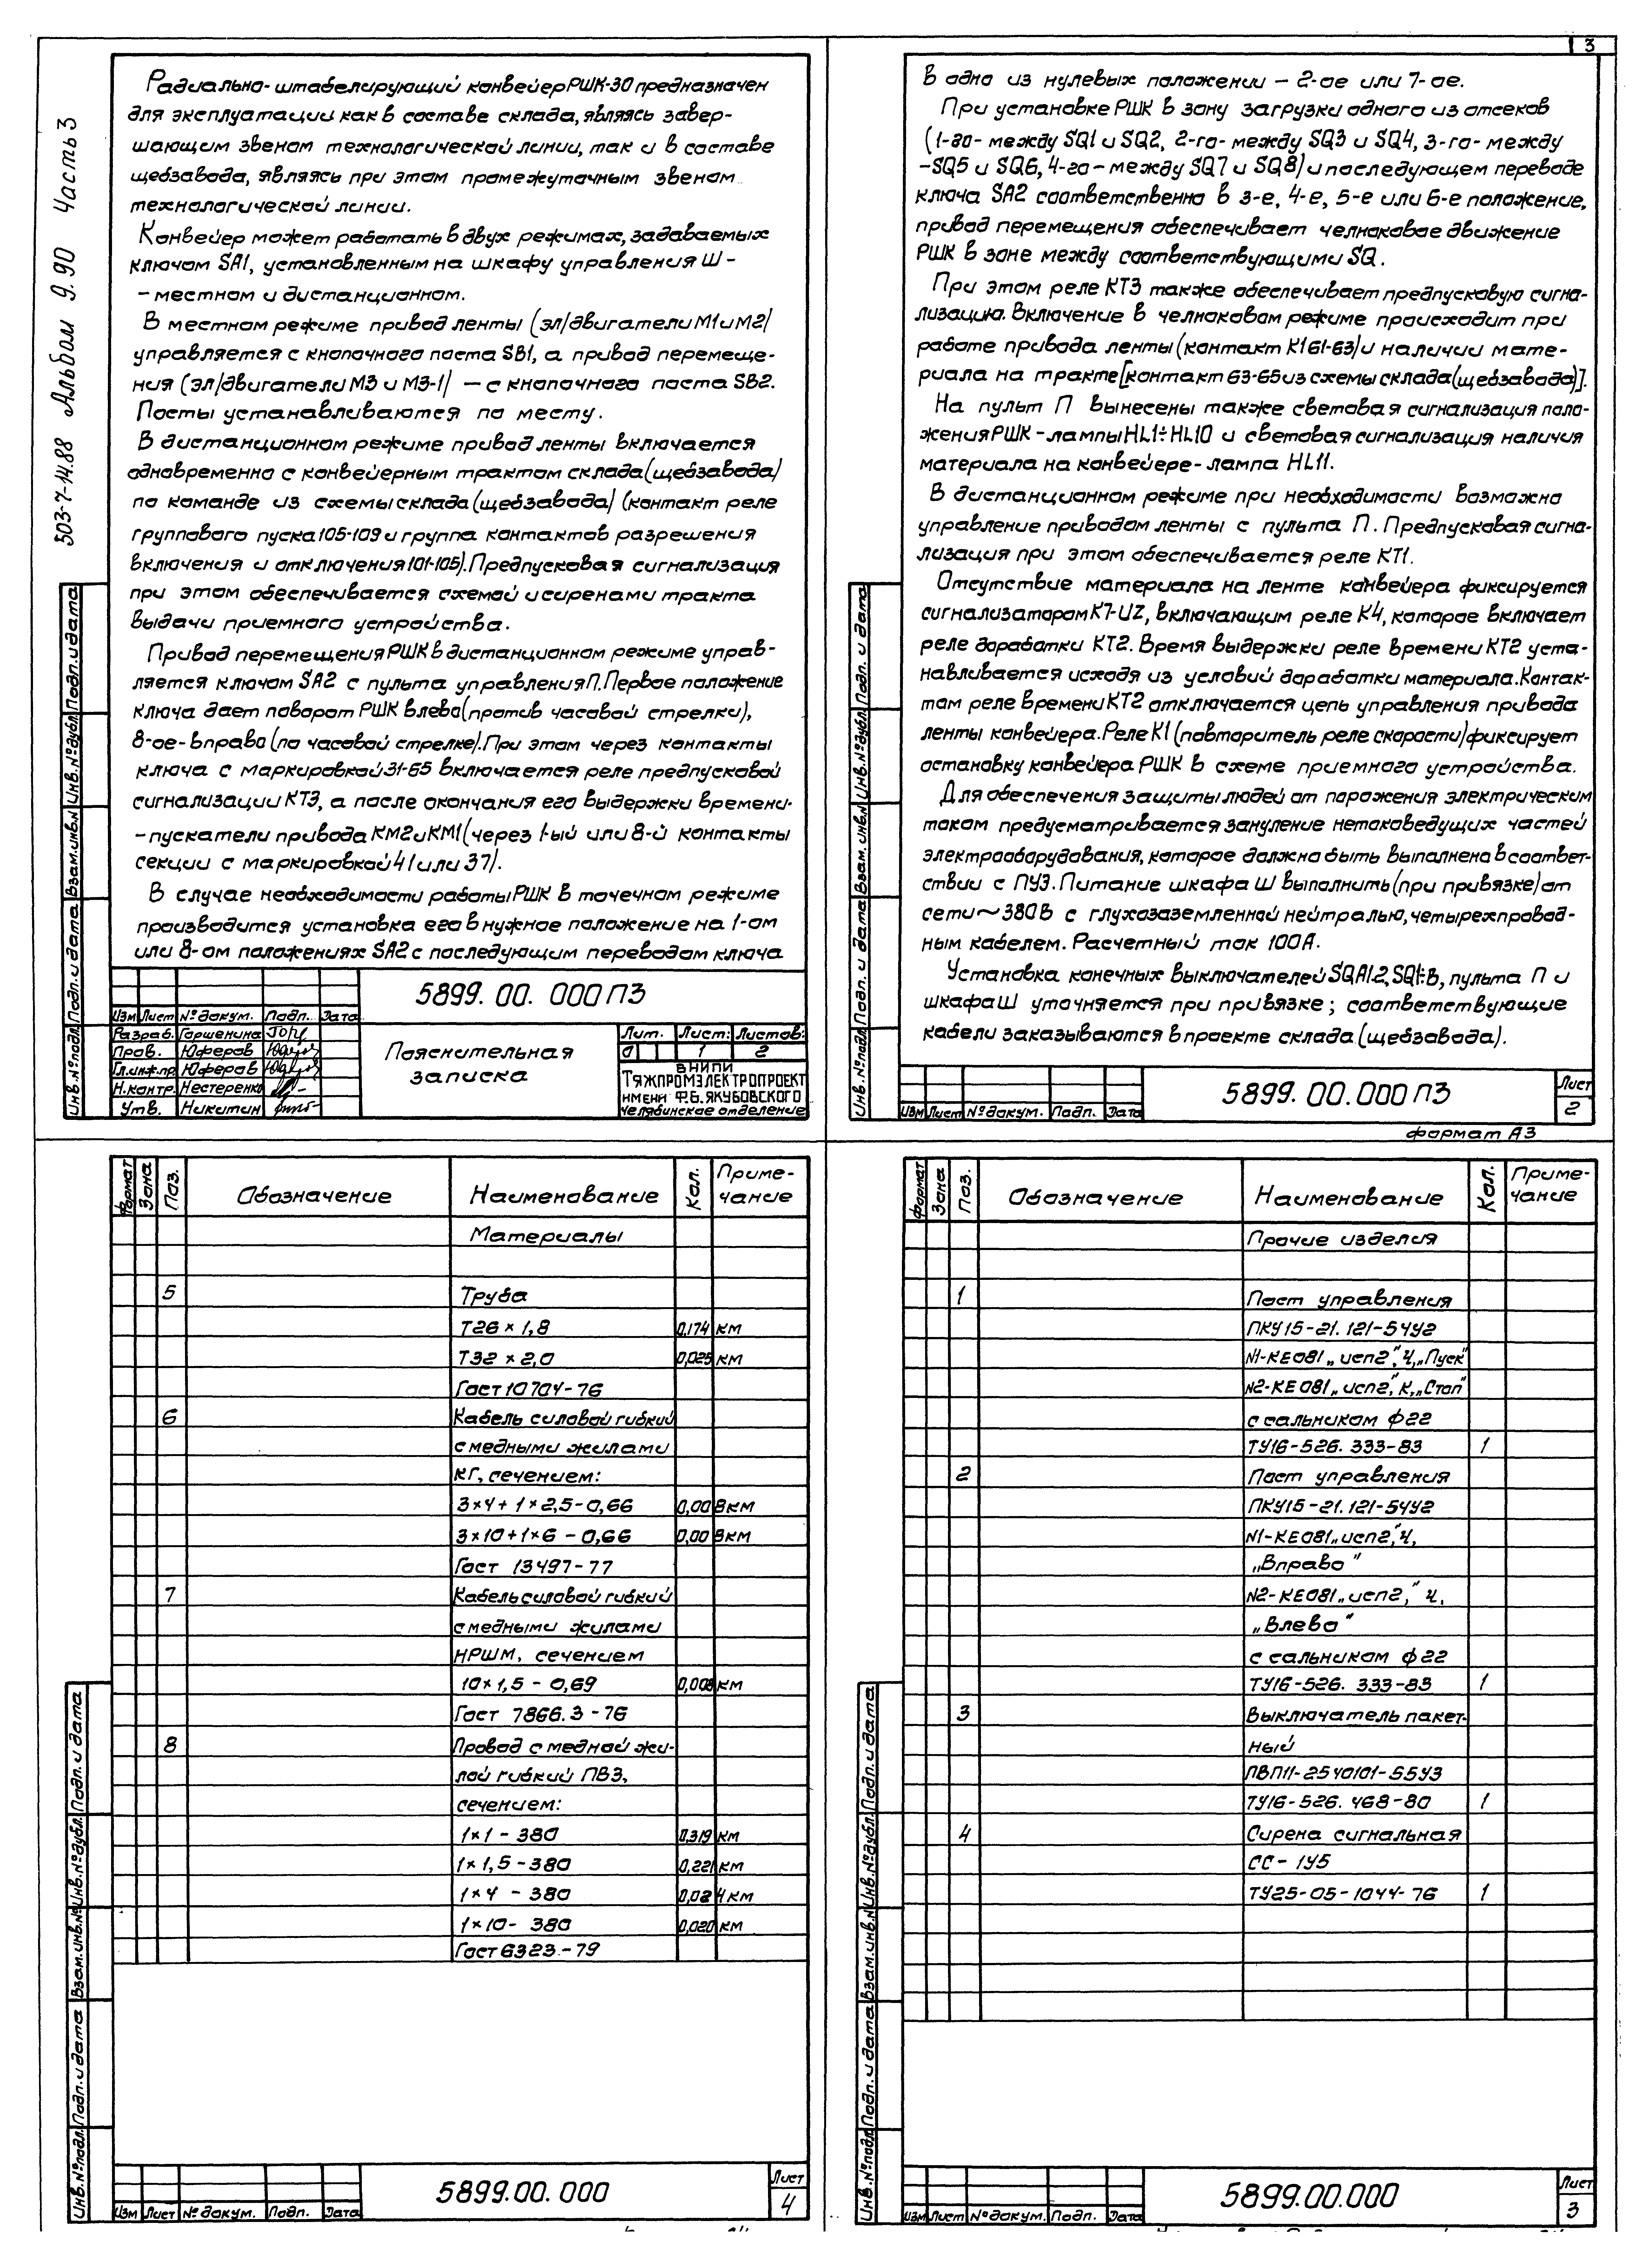 3
503-7-14.88 Альбом 9.90 Часть 3
Радиально-штабелирующий конвейер РШК-30 предназначен
для эксплуатации как в составе склада, являясь завер-
шающим звеном технологической линии, так и в составе
щебзавода, являясь при этом промежуточным звеном
технологической линии.
Конвейер может работать в двух режимах, задаваемых
ключом SA1, установленным на шкафу управления Ш -
- местном и дистанционном.
В местном режиме привод ленты (эл/двигатели М1 и М2)
управляется с кнопочного поста SB1, а привод перемеще-
ния (эл/двигатели М3 и М3-1) — с кнопочного поста SB2.
Посты устанавливаются по месту.
В дистанционном режиме привод ленты включается
одновременно с конвейерным трактом склада (щебзавода)
по команде из схемы склада (щебзавода) (контакт реле
группового пуска 105-109 и группа контактов разрешения
включения и отключения 101-105). Предпусковая сигнализация
при этом обеспечивается схемой и сиренами тракта
выдачи приемного устройства.
Привод перемещения РШК в дистанционном режиме управ-
ляется ключом SA2 с пульта управления П. Первое положение
ключа дает поворот РШК влево (против часовой стрелки),
8-ое - вправо (по часовой стрелке). При этом через контакты
ключа с маркировкой 31-65 включается реле предпусковой
сигнализации КТ3, а после окончания его выдержки времени -
- пускатели привода КМ2 и КМ1 (через 1-ый или 8-й контакты
секции с маркировкой 41 или 37).
В случае необходимости работы РШК в точечном режиме
производится установка его в нужное положение на 1-ом
или 8-ом положениях SA2 с последующим переводом ключа
5899. 00. 000 ПЗ
Изм Лист № докум. Подп. Дата
Разраб. Горшенина
Пров. Юферов
Гл.инж.пр. Юферов
Н.контр. Нестеренко
Утв. Никитин
Пояснительная
записка
Лит. Лист: Листов:
1 2
ВНИПИ
ТЯЖПРОМЭЛЕКТРОПРОЕКТ
ИМЕНИ Ф.Б. ЯКУБОВСКОГО
Челябинское отделение
Инв. № подл. Подп. и дата Взам. инв. № Инв. № дубл. Подп. и дата
в одно из нулевых положений – 2-ое или 7-ое.
При установке РШК в зону загрузки одного из отсеков
(1-го - между SQ1 и SQ2, 2-го - между SQ3 и SQ4, 3-го - между
- SQ5 и SQ6, 4-го - между SQ7 и SQ8) и последующем переводе
ключа SA2 соответственно в 3-е, 4-е, 5-е или 6-е положение,
привод перемещения обеспечивает челноковое движение
РШК в зоне между соответствующими SQ.
При этом реле КТ3 также обеспечивает предпусковую сигна-
лизацию. Включение в челноковом режиме происходит при
работе привода ленты (контакт К1 61-63) и наличии мате-
риала на тракте [контакт 63-65 из схемы склада (щебзавода)].
На пульт П вынесены также световая сигнализация поло-
жения РШК - лампы HL1÷HL10 и световая сигнализация наличия
материала на конвейере - лампа HL11.
В дистанционном режиме при необходимости возможно
управление приводом ленты с пульта П. Предпусковая сигна-
лизация при этом обеспечивается реле КТ1.
Отсутствие материала на ленте конвейера фиксируется
сигнализатором К7-UZ, включающим реле К4, которое включает
реле доработки КТ2. Время выдержки реле времени КТ2 уста-
навливается исходя из условий доработки материала. Контак-
том реле времени КТ2 отключается цепь управления привода
ленты конвейера. Реле К1 (повторитель реле скорости) фиксирует
остановку конвейера РШК в схеме приемного устройства.
Для обеспечения защиты людей от поражения электрическим
током предусматривается зануление нетоковедущих частей
электрооборудования, которое должно быть выполнено в соответ-
ствии с ПУЭ. Питание шкафа Ш выполнить (при привязке) от
сети ~380В с глухозаземленной нейтралью, четырехпровод-
ным кабелем. Расчетный ток 100А.
Установка конечных выключателей SQA1,2, SQ1÷8, пульта П и
шкафа Ш уточняется при привязке; соответствующие
кабели заказываются в проекте склада (щебзавода).
Изм Лист № докум. Подп. Дата
5899. 00. 000 ПЗ
Лист
2
формат А3
Инв. № подл. Подп. и дата Взам. инв. № Инв. № дубл. Подп. и дата
Формат Зона Поз. Обозначение Наименование Кол. Приме-
чание
Материалы
5 Труба
Т26 × 1,8 0,174 км
Т32 × 2,0 0,025 км
Гост 10704-76
6 Кабель силовой гибкий
с медными жилами
КГ, сечением:
3×4 + 1×2,5-0,66 0,008 км
3×10 + 1×6 - 0,66 0,008 км
Гост 13497-77
7 Кабель силовой гибкий
с медными жилами
НРШМ, сечением
10×1,5 - 0,69 0,008 км
Гост 7866.3-76
8 Провод с медной жи-
лой гибкий ПВ3,
сечением:
1×1 - 380 0,319 км
1×1,5 - 380 0,221 км
1×4 - 380 0,024 км
1×10 - 380 0,020 км
Гост 6323-79
Изм Лист № докум. Подп. Дата
5899.00.000
Лист
4
Инв. № подл. Подп. и дата Взам. инв. № Инв. № дубл. Подп. и дата
Формат Зона Поз. Обозначение Наименование Кол. Приме-
чание
Прочие изделия
1 Пост управления
ПКУ15-21.121-54У2
N1-КЕ081 „исп2", Ч, „Пуск"
N2-КЕ081 „исп2", К, „Стоп"
с сальником ф22
ТУ16-526.333-83 1
2 Пост управления
ПКУ15-21.121-54У2
N1-КЕ081 „исп2", Ч,
„Вправо"
N2-КЕ081 „исп2", Ч,
„Влево"
с сальником ф22
ТУ16-526.333-83 1
3 Выключатель пакет-
ный
ПВП11-2540101-55У3
ТУ16-526.468-80 1
4 Сирена сигнальная
СС-1У5
ТУ25-05-1044-76 1
Изм Лист № докум. Подп. Дата
5899.00.000
Лист
3
Инв. № подл. Подп. и дата Взам. инв. № Инв. № дубл. Подп. и дата